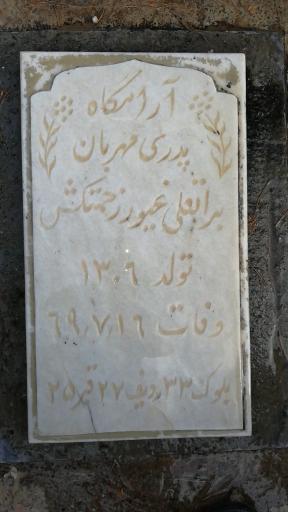 آرامگاه
پدری مهربان
براتعلی غیور زحمتکش
تولد ۱۳۰۶
وفات ۶۹،۷،۱۶
بلوک ۳۳ ردیف ۲۷ قبر ۲۵